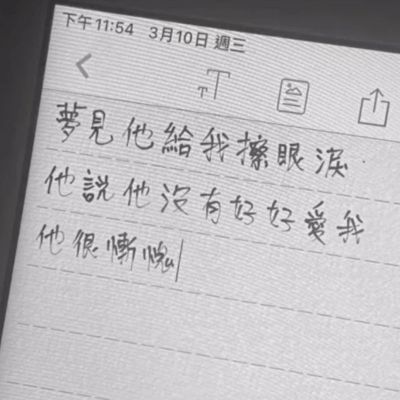 下午11:54 3月10日 週三
TT
夢見他給我擦眼淚.
他說他沒有好好愛我
他很慚愧